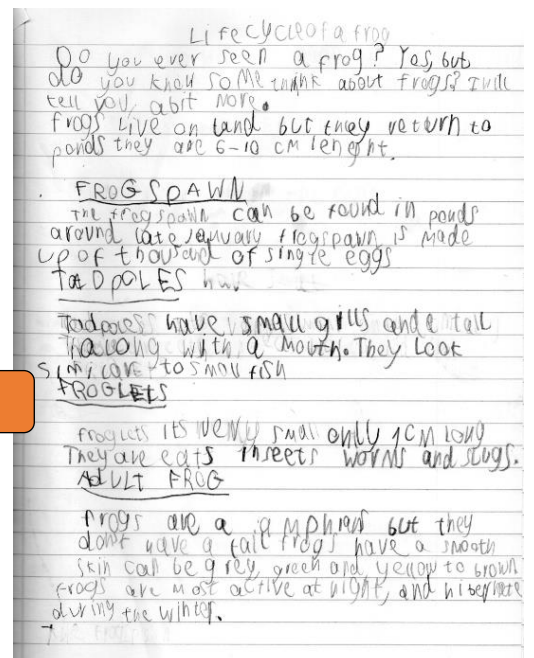 Lifecycle of a frog
Do you ever seen a frog? Yes, but
do you know some think about frogs? I will
tell you abit more.
frogs live on land but they return to
ponds they are 6-10 cm lenght.
FROGSPAWN
The frogspawn can be found in ponds
around late January frogspawn is made
up of thousand of single eggs
TadPOLES hav
Tadpoless have small gills and a tail
along with a mouth. They look
similare to small fish
FROGLETS
froglets its very small only 1cm long
They are eats inseets worms and slugs.
AdULT FROG
frogs are a amphian but they
don't have a tail frogs have a smooth
skin can be grey, green and yellow to brown
frogs are most active at night, and hibernate
during the winter.